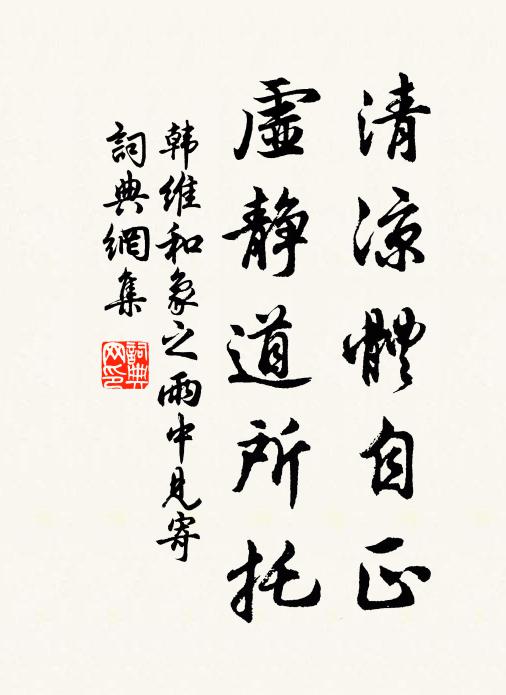 清涼體自正
虛靜道所托
韩維和象之雨中見寄
詞典網集
詞典
网印